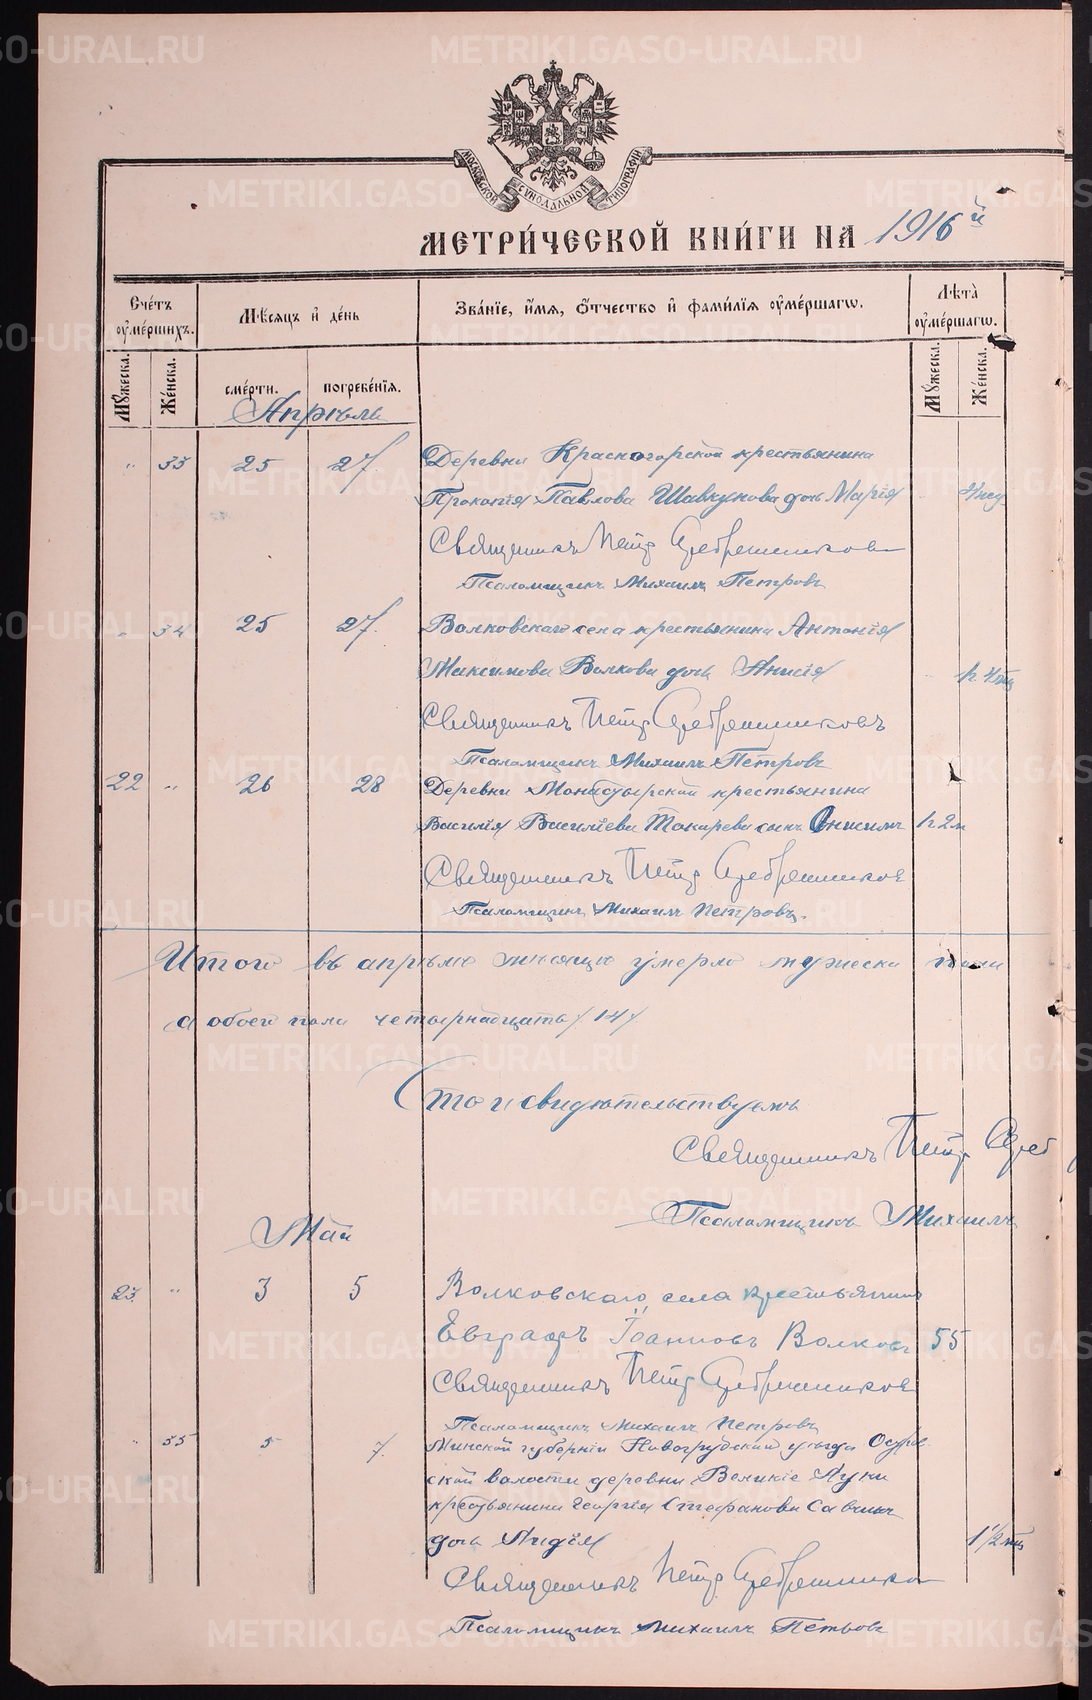 METRIKI.GASO-URAL.RU
МОСКОВСКОЙ СУНОДАЛЬНОЙ ТИПОГРАФІИ
МЕТРИ́ЧЕСКОЙ КНИ́ГИ НА 1916й
Сче́тъ оуме́ршихъ.
Мѣ́сяцъ и де́нь
Зва́ніе, и́мя, ѻ́тчество и фами́лія оуме́ршагѡ.
Лѣта̀ оуме́ршагѡ.
Му́жеска.
Же́нска.
сме́рти.
погребе́нія.
Му́жеска.
Же́нска.
Апрѣль
" 33 25 27. Деревни Красногорской крестьянина
Прокопія Павлова Шавкунова дочь Марія
Священникъ Петр Серебренников
Псаломщикъ Михаилъ Петровъ
" 34 25 27. Волковскаго села крестьянина Антонія
Максимова Волкова дочь Анисія
Священникъ Петр Серебренниковъ
Псаломщикъ Михаилъ Петровъ
22 " 26 28 Деревни Монастырской крестьянина
Василія Василіева Токарева сынъ Онисимъ
Священникъ Петр Серебренников
Псаломщикъ Михаилъ Петровъ.
Итого въ апрѣлѣ мѣсяцѣ умерло мужеска пола
а обоего пола четырнадцать /14/
Что и свидѣтельствуемъ
Священникъ Петр Среб
Псаломщикъ Михаилъ
Май
23 " 3 5 Волковскаго села крестьянинъ
Евграфъ Іоанновъ Волковъ 55
Священникъ Петр Серебренников
Псаломщикъ Михаилъ Петровъ
" 35 5 7. Минской губерніи Новогрудскаго уѣзда
ской волости деревни Великіе Луки
крестьянина Георгія Стефанова
дочь Лидія 1 1/2
Священникъ Петр Серебренников
Псаломщикъ Михаилъ Петровъ